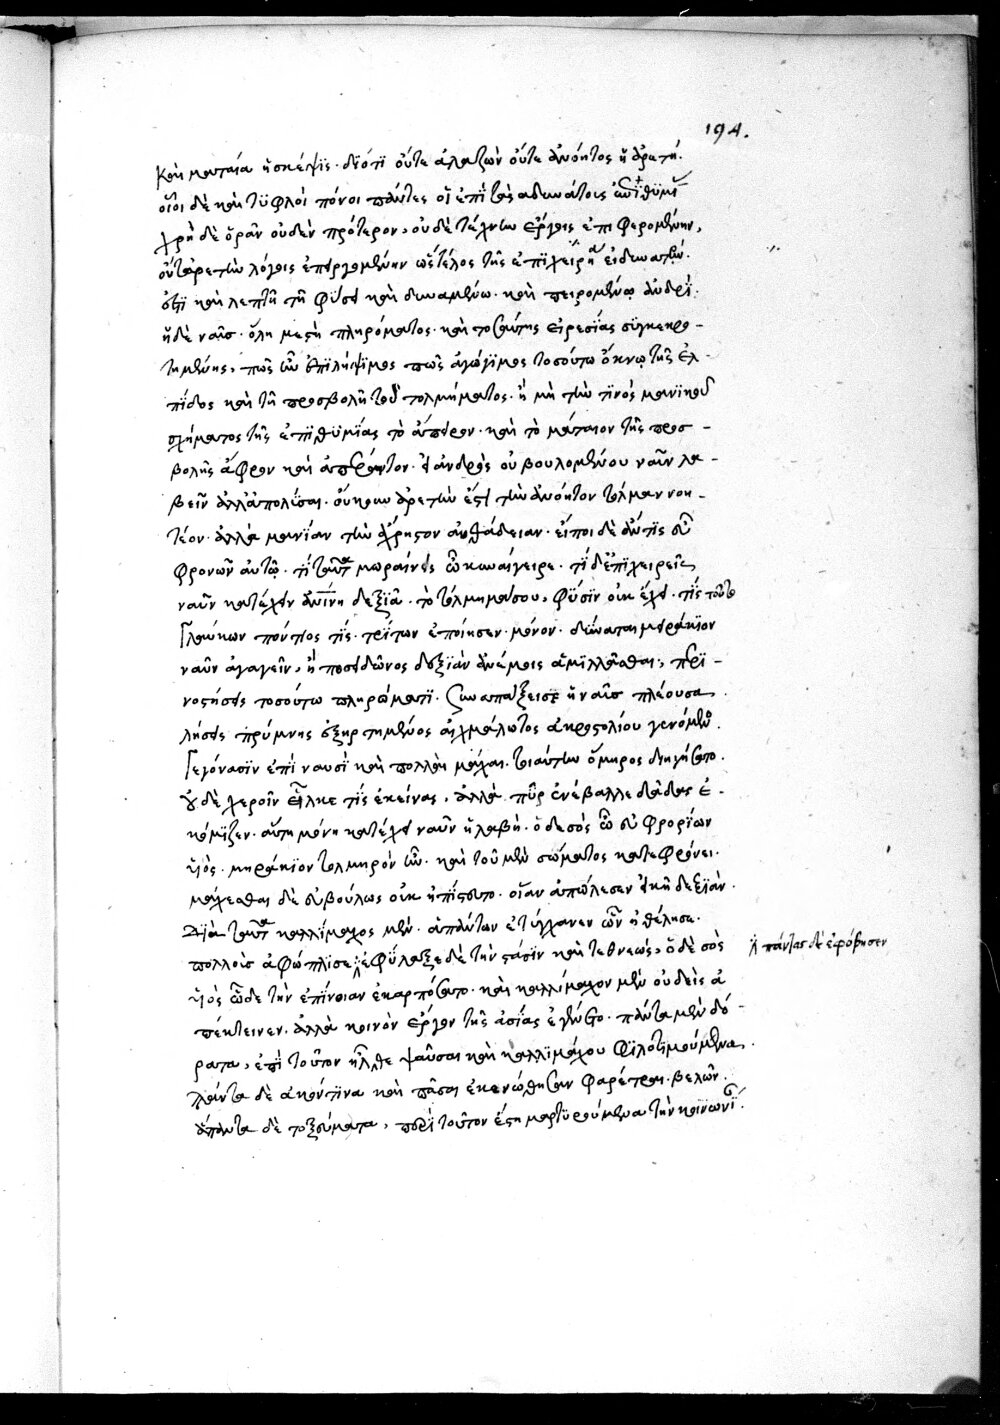 194.
καὶ ματαία ἡ σκέψις. διότι οὔτε ἀλαζὼν οὔτε ἀνόητος ἡ ἀρετή.
οἷοι δὲ καὶ τυφλοὶ πόνοι πάντες οἱ ἐπὶ τοῖς ἀδυνάτοις
χρὴ δὲ ὁρᾶν οὐδὲν πρότερον, οὐδὲ τέχνην ἔργοις ἐπιφερομένην,
οὔτ' ἀρετὴν λόγοις ἐπερχομένην ὡς τέλος τῆς ἐπιχειρη εἰ δυνατὴ.
ἐστι καὶ λεπτὴ τῇ φύσει καὶ δυναμένω. καὶ πειρομένῳ ἀνδρί.
ἡ δὲ ναῦς. ὅλη μεστὴ πληρώματος. καὶ τοσαύτης εἰρεσίας συγκεκρο-
τημένης, πῶς ἦν ἐπιλήψιμος πῶς ἀγώγιμος τοσούτω ὄκνῳ τῆς ἐλ-
πίδος καὶ τῇ προσβολῇ τοῦ τολμήματος. ἢ μὴ τὴν τινὸς μανικοῦ
σχήματος τῆς ἐπιθυμίας τὸ ἄπορον. καὶ τὸ μάταιον τῆς προσ-
βολῆς ἄφρον καὶ ἀπέραντον. ἐξ ἀνδρὸς οὐ βουλομένου ναῦν λα-
βεῖν ἀλλ' ἀπολέσαι. οὔκουν ἀρετὴν ἐστὶ τὴν ἀνόητον τόλμαν νοη-
τέον. ἀλλὰ μανίαν τὴν ἄχρηστον αὐθάδειαν. εἴποι δὲ ἄν τις εὖ
φρονῶν αὐτῷ. τί ταῦτα μωραίνεις ὦ κυναίγειρε. τί δ' ἐπιχειρεῖς
ναῦν κατέχειν ἀνθίνη δεξιᾷ. τὸ τόλμημά σου, φύσιν οὐκ ἔχει. τίς τοῦτο
γλαύκων πόντιος τίς. τρίτων ἐποίησεν. μόνον. δύναται μειράκιον
ναῦν ἀγαγεῖν, ἢ ποσειδῶνος δεξιὰν ἀνέμοις ἁμιλλᾶσθαι, περι-
νοστήσεις τοσούτω πληρώματι. συναπάξεισε ἡ ναῦς πλέουσα.
λήσεις πρύμνης ἐξηρτημένος αἰχμάλωτος ἀκροστολίου γενόμενος.
γεγόνασιν ἐπὶ ναυσὶ καὶ πολλαὶ μάχαι. τοιαύτην ὅμηρος διηγήσατο.
οὐδὲ χεροῖν εἷλκε τίς ἐκείνας, ἀλλὰ πῦρ ἐνέβαλλε δᾷδας ἐ-
κόμιζεν. αὕτη μόνη κατέχει ναῦν ἡ λαβή. ὁ δὲ σὸς ὦ εὐφορίων
υἱὸς. μηράκιον τολμηρὸν ἦν. καὶ τοῦ μὲν σώματος κατεφρόνει.
μάχεσθαι δὲ εὐβούλως οὐκ ἠπίστατο. οἷαν ἀπώλεσεν εἰκῆ δεξιάν.
Διὰ ταῦτα καλλίμαχος μὲν. ἁπάντων ἐτύγχανεν ὧν ἠθέλησε.
πολλοὺς ἀφώπλισε, ἐφύλαξε δὲ τὴν στάσιν καὶ τεθνεώς, ὁ δὲ σὸς
ἢ πάντας δὲ ἐφόβησεν
υἱὸς ὧδε τὴν ἐπίνοιαν ἐκαρπώσατο. καὶ καλλίμαχον μὲν οὐδεὶς ἀ
πέκτεινεν. ἀλλὰ κοινὸν ἔργον τῆς ἀσίας ἐγένετο. πάντα μὲν δό-
ρατα, ἐπὶ τοῦτον ἦλθε ψαῦσαι καὶ καλλιμάχου φιλοτιμούμενα.
πάντα δὲ ἀκόντινα καὶ πᾶσαι ἐκενώθησαν φαρέτραι. βελῶν.
ἅπαντα δὲ τοξεύματα, περὶ τοῦτον ἔστη μαρτυρούμενα τὴν κοινων